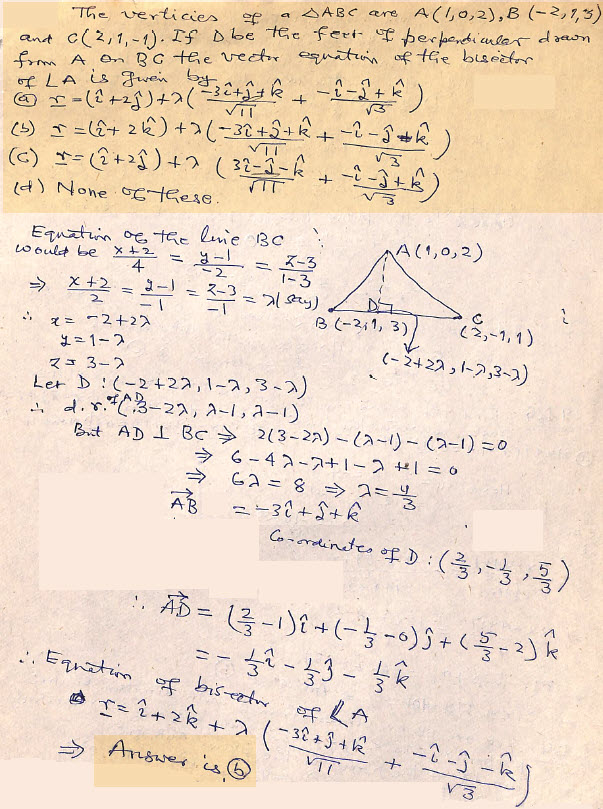 The verticies of a △ABC are A(1,0,2), B(-2,1,3)
and C(2,1,-1). If D be the feet of perpendicular drawn
from A on BC the vector equation of the bisector
of ∠A is given by
(a) r = (î+2ĵ)+λ((-3î+ĵ+k̂)/√11 + (-î-ĵ+k̂)/√3)
(b) r = (î+2k̂)+λ((-3î+ĵ+k̂)/√11 + (-î-ĵ-k̂)/√3)
(c) r = (î+2ĵ)+λ((3î-ĵ-k̂)/√11 + (-î-ĵ+k̂)/√3)
(d) None of these.
Equation of the line BC
would be (x+2)/4 = (y-1)/-2 = (z-3)/(1-3)
⇒ (x+2)/2 = (y-1)/-1 = (z-3)/-1 = λ(say)
∴ x = -2+2λ
y = 1-λ
z = 3-λ
A(1,0,2)
D
B(-2,1,3)
C
(2,-1,1)
(-2+2λ,1-λ,3-λ)
Let D : (-2+2λ, 1-λ, 3-λ)
∴ d.r. of AD (3-2λ, λ-1, λ-1)
But AD ⊥ BC ⇒ 2(3-2λ)-(λ-1)-(λ-1)=0
⇒ 6-4λ-λ+1-λ+1=0
⇒ 6λ = 8 ⇒ λ = 4/3
AB = -3î+ĵ+k̂
Co-ordinates of D : (2/3, -1/3, 5/3)
∴ AD = (2/3-1)î+(-1/3-0)ĵ+(5/3-2)k̂
= -1/3î-1/3ĵ-1/3k̂
∴ Equation of bisector of ∠A
r = î+2k̂+λ((-3î+ĵ+k̂)/√11 + (-î-ĵ-k̂)/√3)
⇒ Answer is (b)